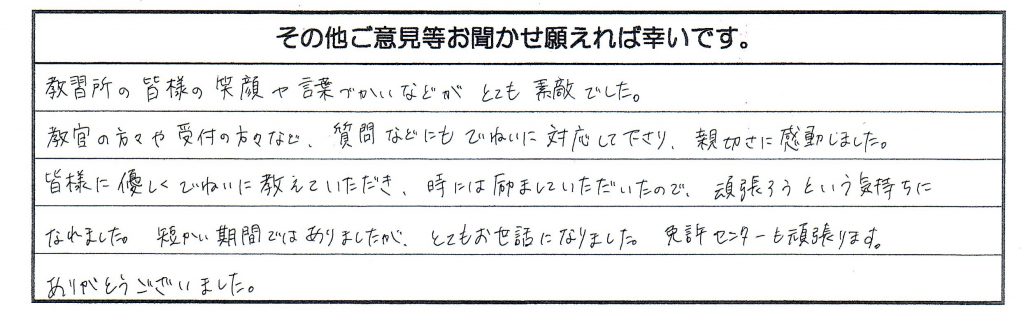 その他ご意見等お聞かせ願えれば幸いです。
教習所の皆様の笑顔や言葉づかいなどが とても 素敵でした。
教官の方々や受付の方々など、質問などにもていねいに対応して下さり、親切さに感動しました。
皆様に優しくていねいに教えていただき、時には励ましていただいたので、頑張ろうという気持ちに
なれました。 短かい期間ではありましたが、とてもお世話になりました。 免許センターも頑張ります。
ありがとうございました。